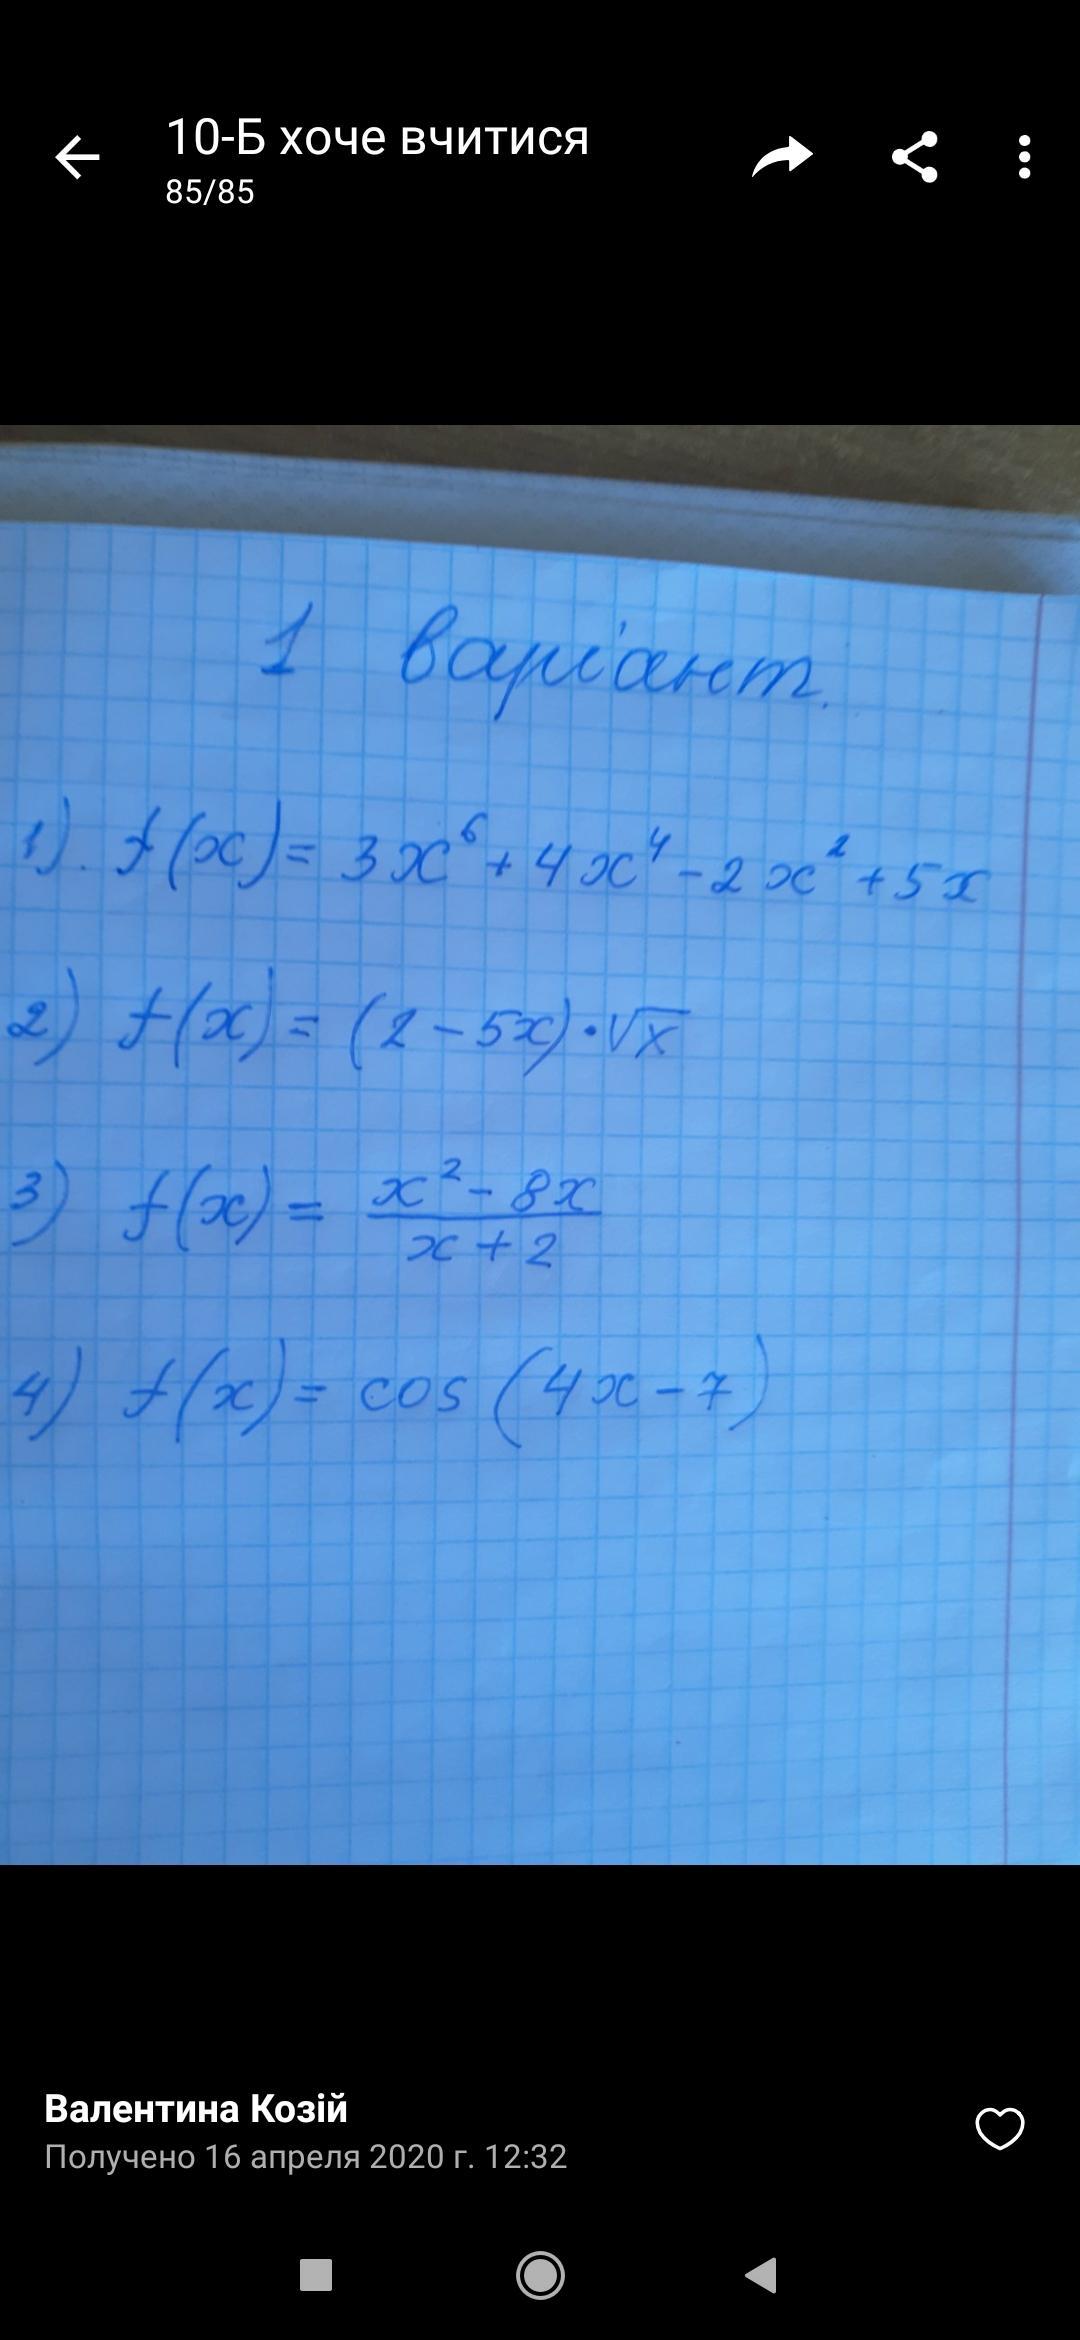 10-Б хоче вчитися
85/85
1 варіант.
1). f(x) = 3x⁶ + 4x⁴ - 2x² + 5x
2) f(x) = (2 - 5x) · √x
3) f(x) = (x² - 8x)/(x + 2)
4) f(x) = cos (4x - 7)
Валентина Козій
Получено 16 апреля 2020 г. 12:32